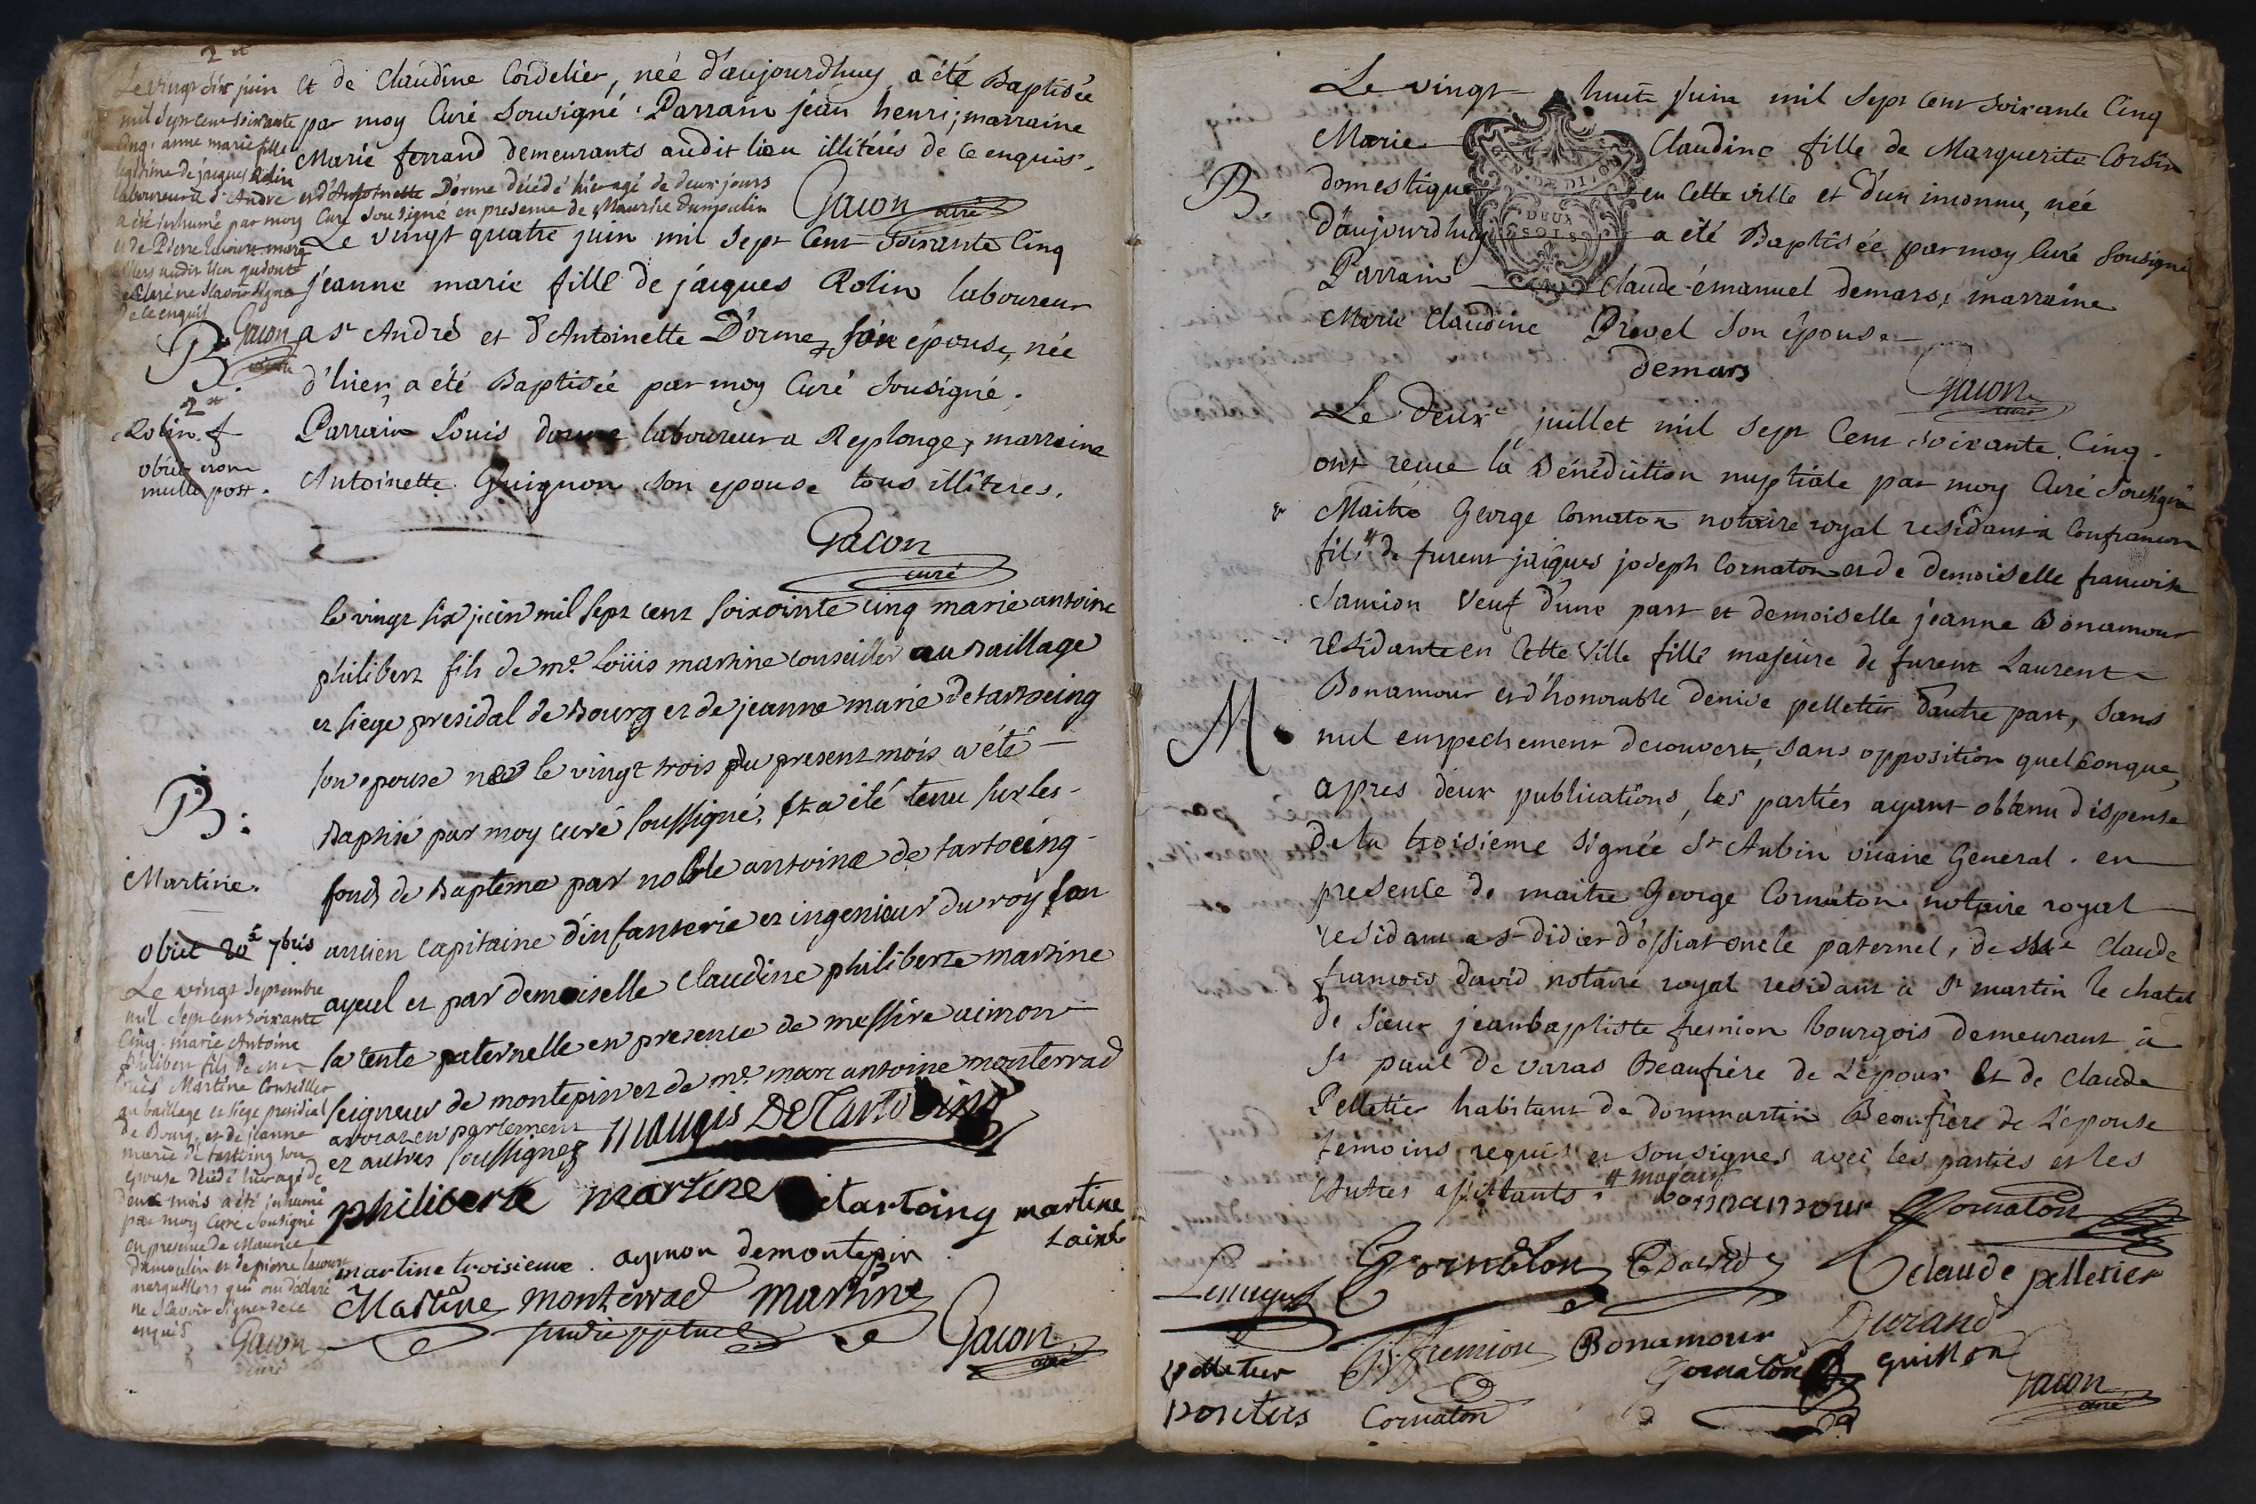 2
Le vingt six juin
mil sept cent soixante
cinq anne marie fille
legitime de jacques Rolin
laboureur a st André et d'Antoinette Dorme décédé hier agé de deux jours
a été inhumé par moy Curé sousigné en presence de Maurice Dumoulin
et de Pierre marg
audit lieu qui ont
declaré ne sçavoir signer
de ce enquis
Gacon
curé
et de Claudine Cordelier, née d'aujourdhuy a été Baptisée
par moy Curé sousigné. Parrain jean henri; marraine
Marie ferrand demeurants audit lieu illitérés de ce enquis.
Gacon curé
B.
2
Rolin. f
obiit non
nullo post.
Le vingt quatre juin mil sept Cent soixante Cinq
jeanne marie fille de jacques Rolin laboureur
a st André et d'Antoinette D'orme son épouse, née
d'hier, a été Baptisée par moy Curé sousigné.
Parrain Louis dorme laboureur a Replonge, marraine
Antoinette Guignon son epouse tous illiteres.
Gacon
curé
B.
Martine.
obiit 20 7bris
le vingt six juin mil sept cent soixointe cinq marie antoine
philibert fils de me. Loüis martine conseiller au Baillage
et siege presidal de Bourg et de jeanne marie de tartoeing
son epouse née le vingt trois du present mois a été
Baptisé par moy curé soussigné. Et a été tenu sur les
fonds de Bapteme par noble antoine de tartoeing
ancien Capitaine d'infanterie et ingenieur du roy son
ayeul et par demoiselle Claudine philiberte martine
sa tente paternelle en presence de messire aimon
seigneur de montepin et de me. marc antoine monterrad
avocat en parlement
et autres soussignez
Le vingt Septembre
mil sept cent soixante
Cinq. marie Antoine
philibert fils de Mre
Louis Martine Conseiller
au baillage et siege presidial
de Bourg, et de jeanne
marie de tartoing son
epouse décédé hier agé de
deux mois a été inhumé
par moy Curé sousigné
en presence de Maurice
dumoulin et de pierre
marguilliers qui ont déclaré
ne sçavoir signer de ce
enquis
Gacon
curé
Maugis De Tartoeing
philiberte martine detartoing martine
Lainé
martine troisieme. aymon demontepin
Martine monterrad martine
Gacon
curé
Le vingt huit juin mil sept cent soixante Cinq
Marie Claudine fille de Marguerite Corsin
B.
domestique en cette ville et d'un inconnu, née
d'aujourdhuy a été Baptisée par moy Curé sousigné
Parrain Claude-émanuel demars; marraine
Marie Claudine Prevel son épouse
GEN. DE DIJON
DEUX
SOLS
demars
Gacon
curé
Le deuxe juillet mil sept Cent soixante Cinq.
ont recue la Bénédiction nuptiale par moy Curé sousigné
Maitre George Cornaton notaire royal residant a Confrancon
fils # de furent jacques joseph Cornaton et de demoiselle francoise
Samion veuf d'une part et demoiselle jeanne Bonamour
residante en Cette ville fille majeure de furent Laurent
M.
Bonamour et d'honorable denise pelletier d'autre part, sans
nul empechement decouvert, sans opposition quelconque,
apres deux publications, les parties ayant obtenu dispense
de la troisieme signée St Aubin vicaire General. en
presence de maitre George Cornaton notaire royal
residant a st didier d'ossiat oncle paternel, de Claude
francois david notaire royal residant a St martin le chatel
de sieur jeanbaptiste fremion bourgois demeurant à
St paul de varas Beaufrere de L'epoux et de Claude
Pelletier habitant de dommartin Beaufrere de L'epouse
temoins requis et sousignés avec les parties et les
autres assistants. # majeur
bonnamour Cornaton
Cornaton David Claude pelletier
fremion Bonamour Durand
pelletier Cornaton guillon
Cornaton Gacon
curé